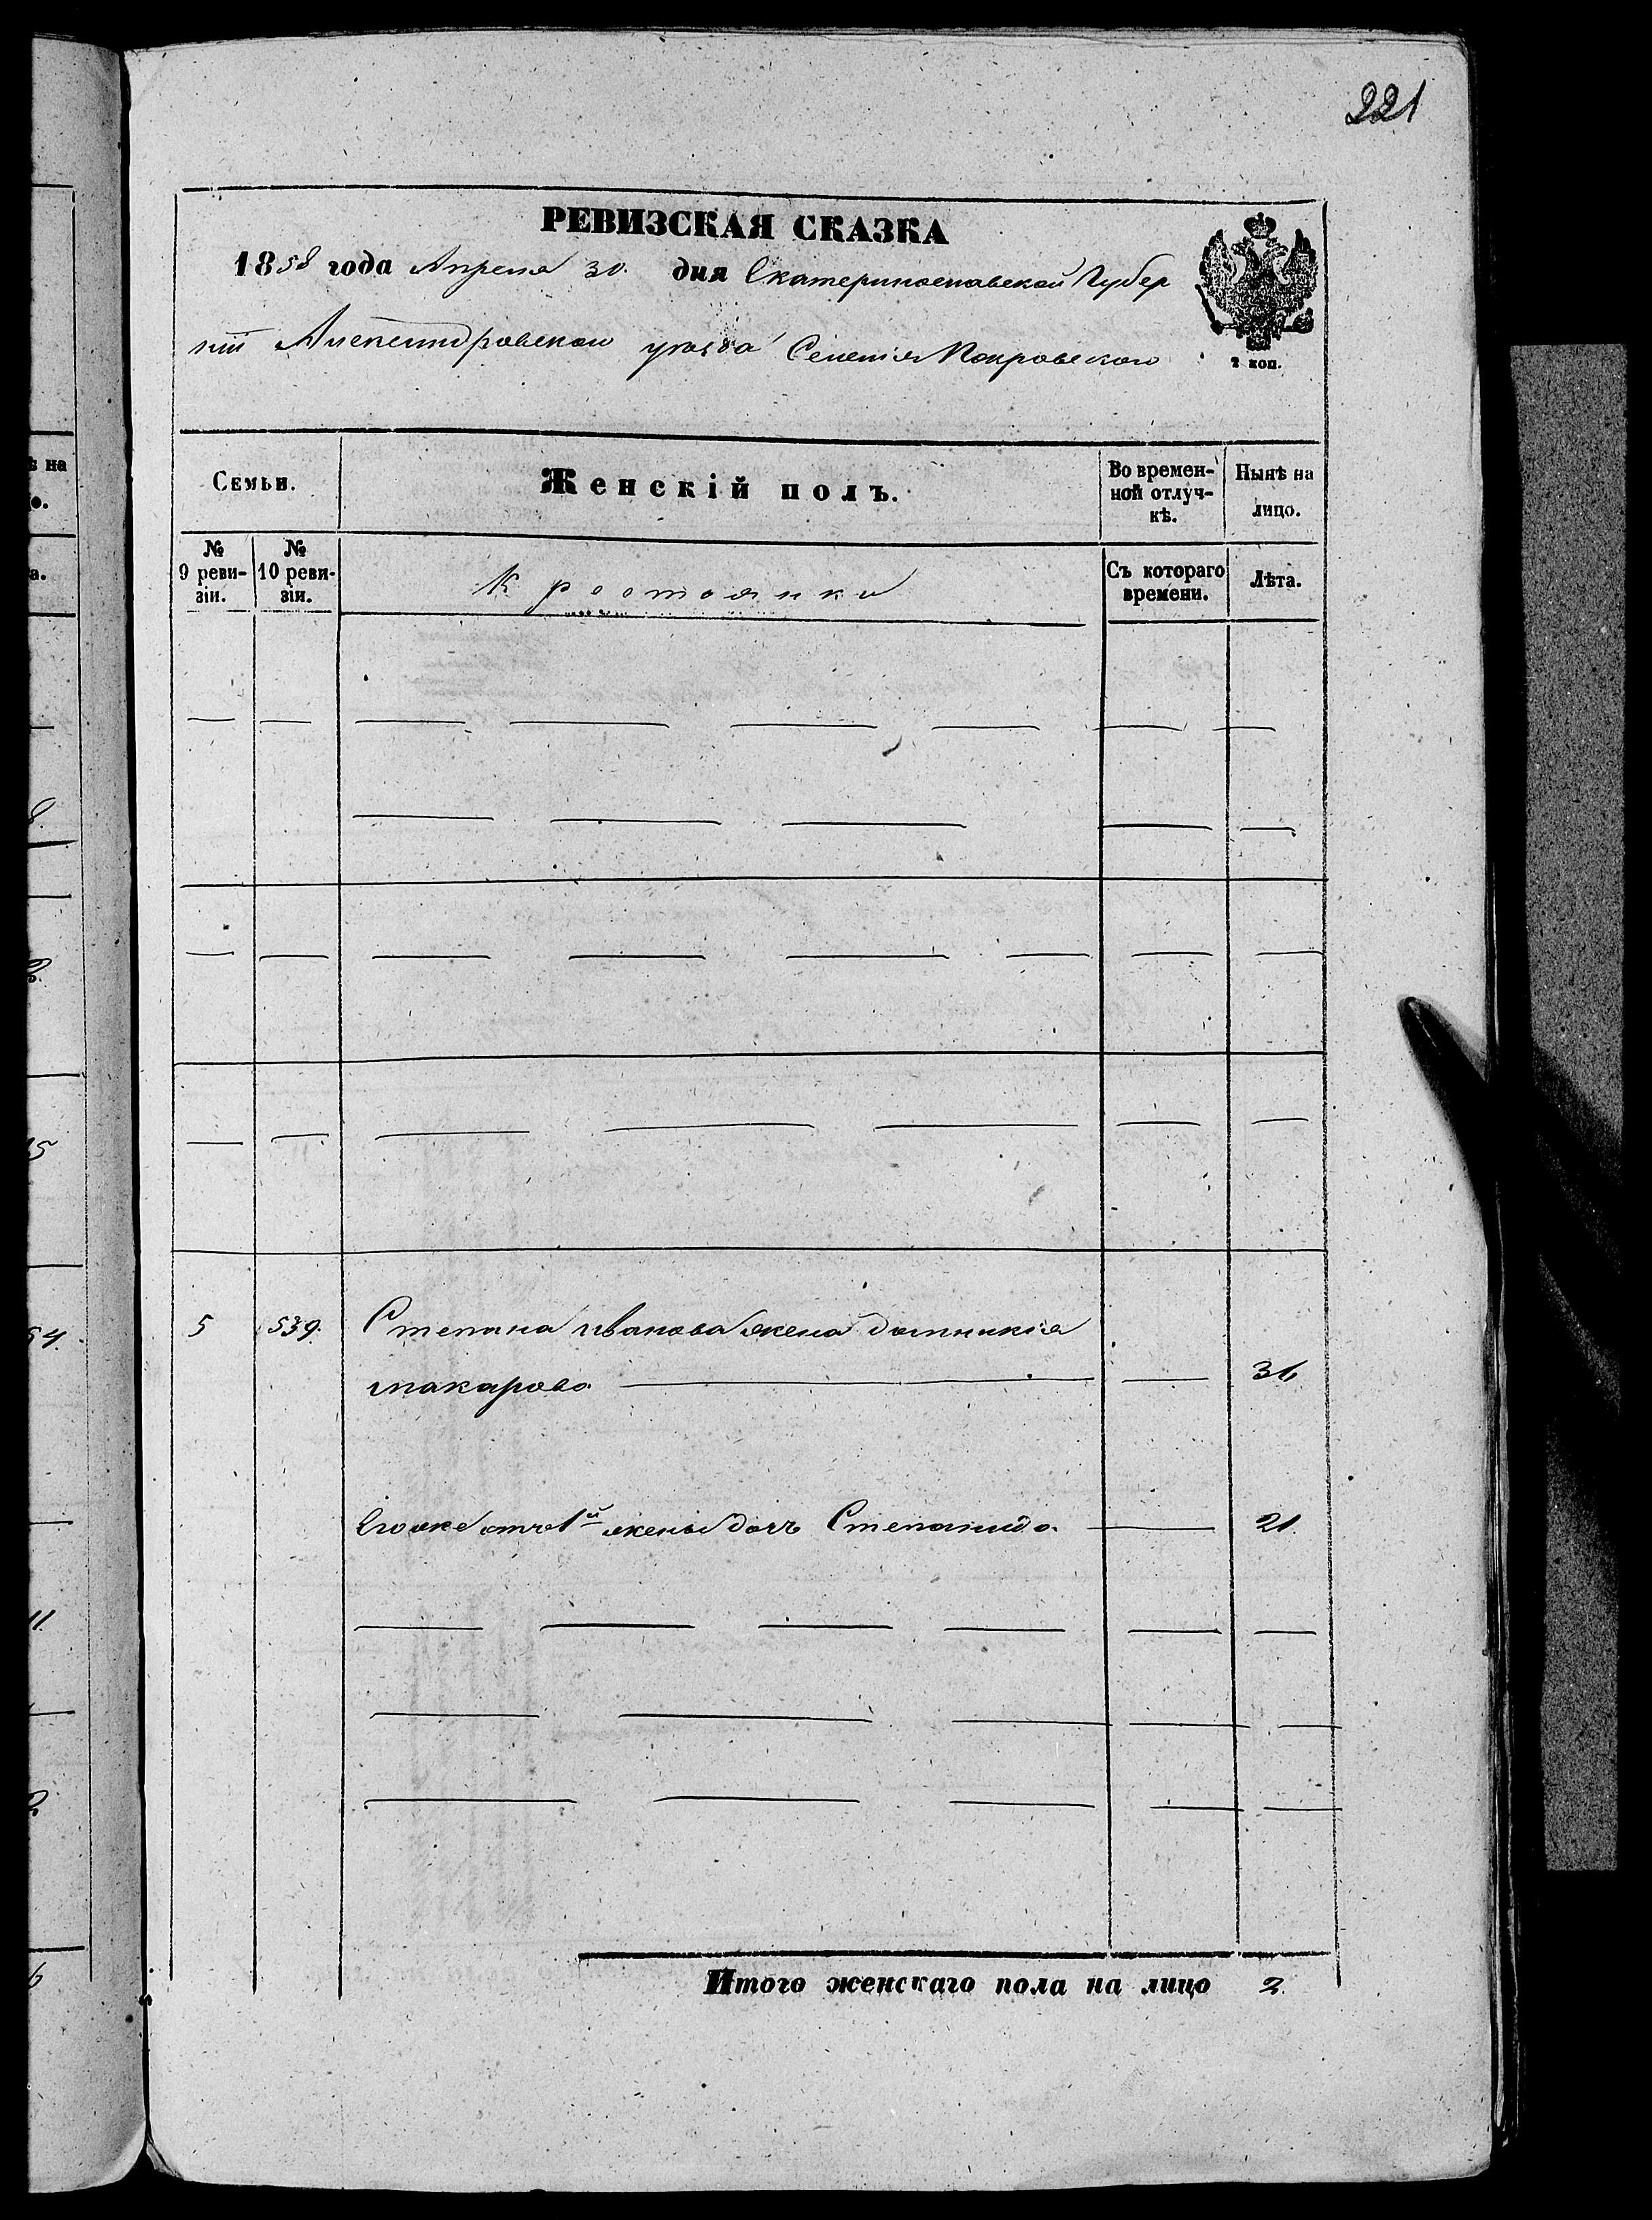 221
РЕВИЗСКАЯ СКАЗКА
1858 года Апреля 30. дня Екатеринославской Губер
нiи Александровского уѣзда Селенiя Покровского
2 коп.
Семьи.
Женскiй полъ.
Во времен-
ной отлуч-
кѣ.
Нынѣ на
лицо.
№
9 реви-
зiи.
№
10 реви-
зiи.
Крестьянки
Съ котораго
времени.
Лѣта.
5 539. Степана Иванова жена домникiя
макарова 36
Его же отъ 1й жены дочь Степанида 21.
Итого женскаго пола на лицо 2.